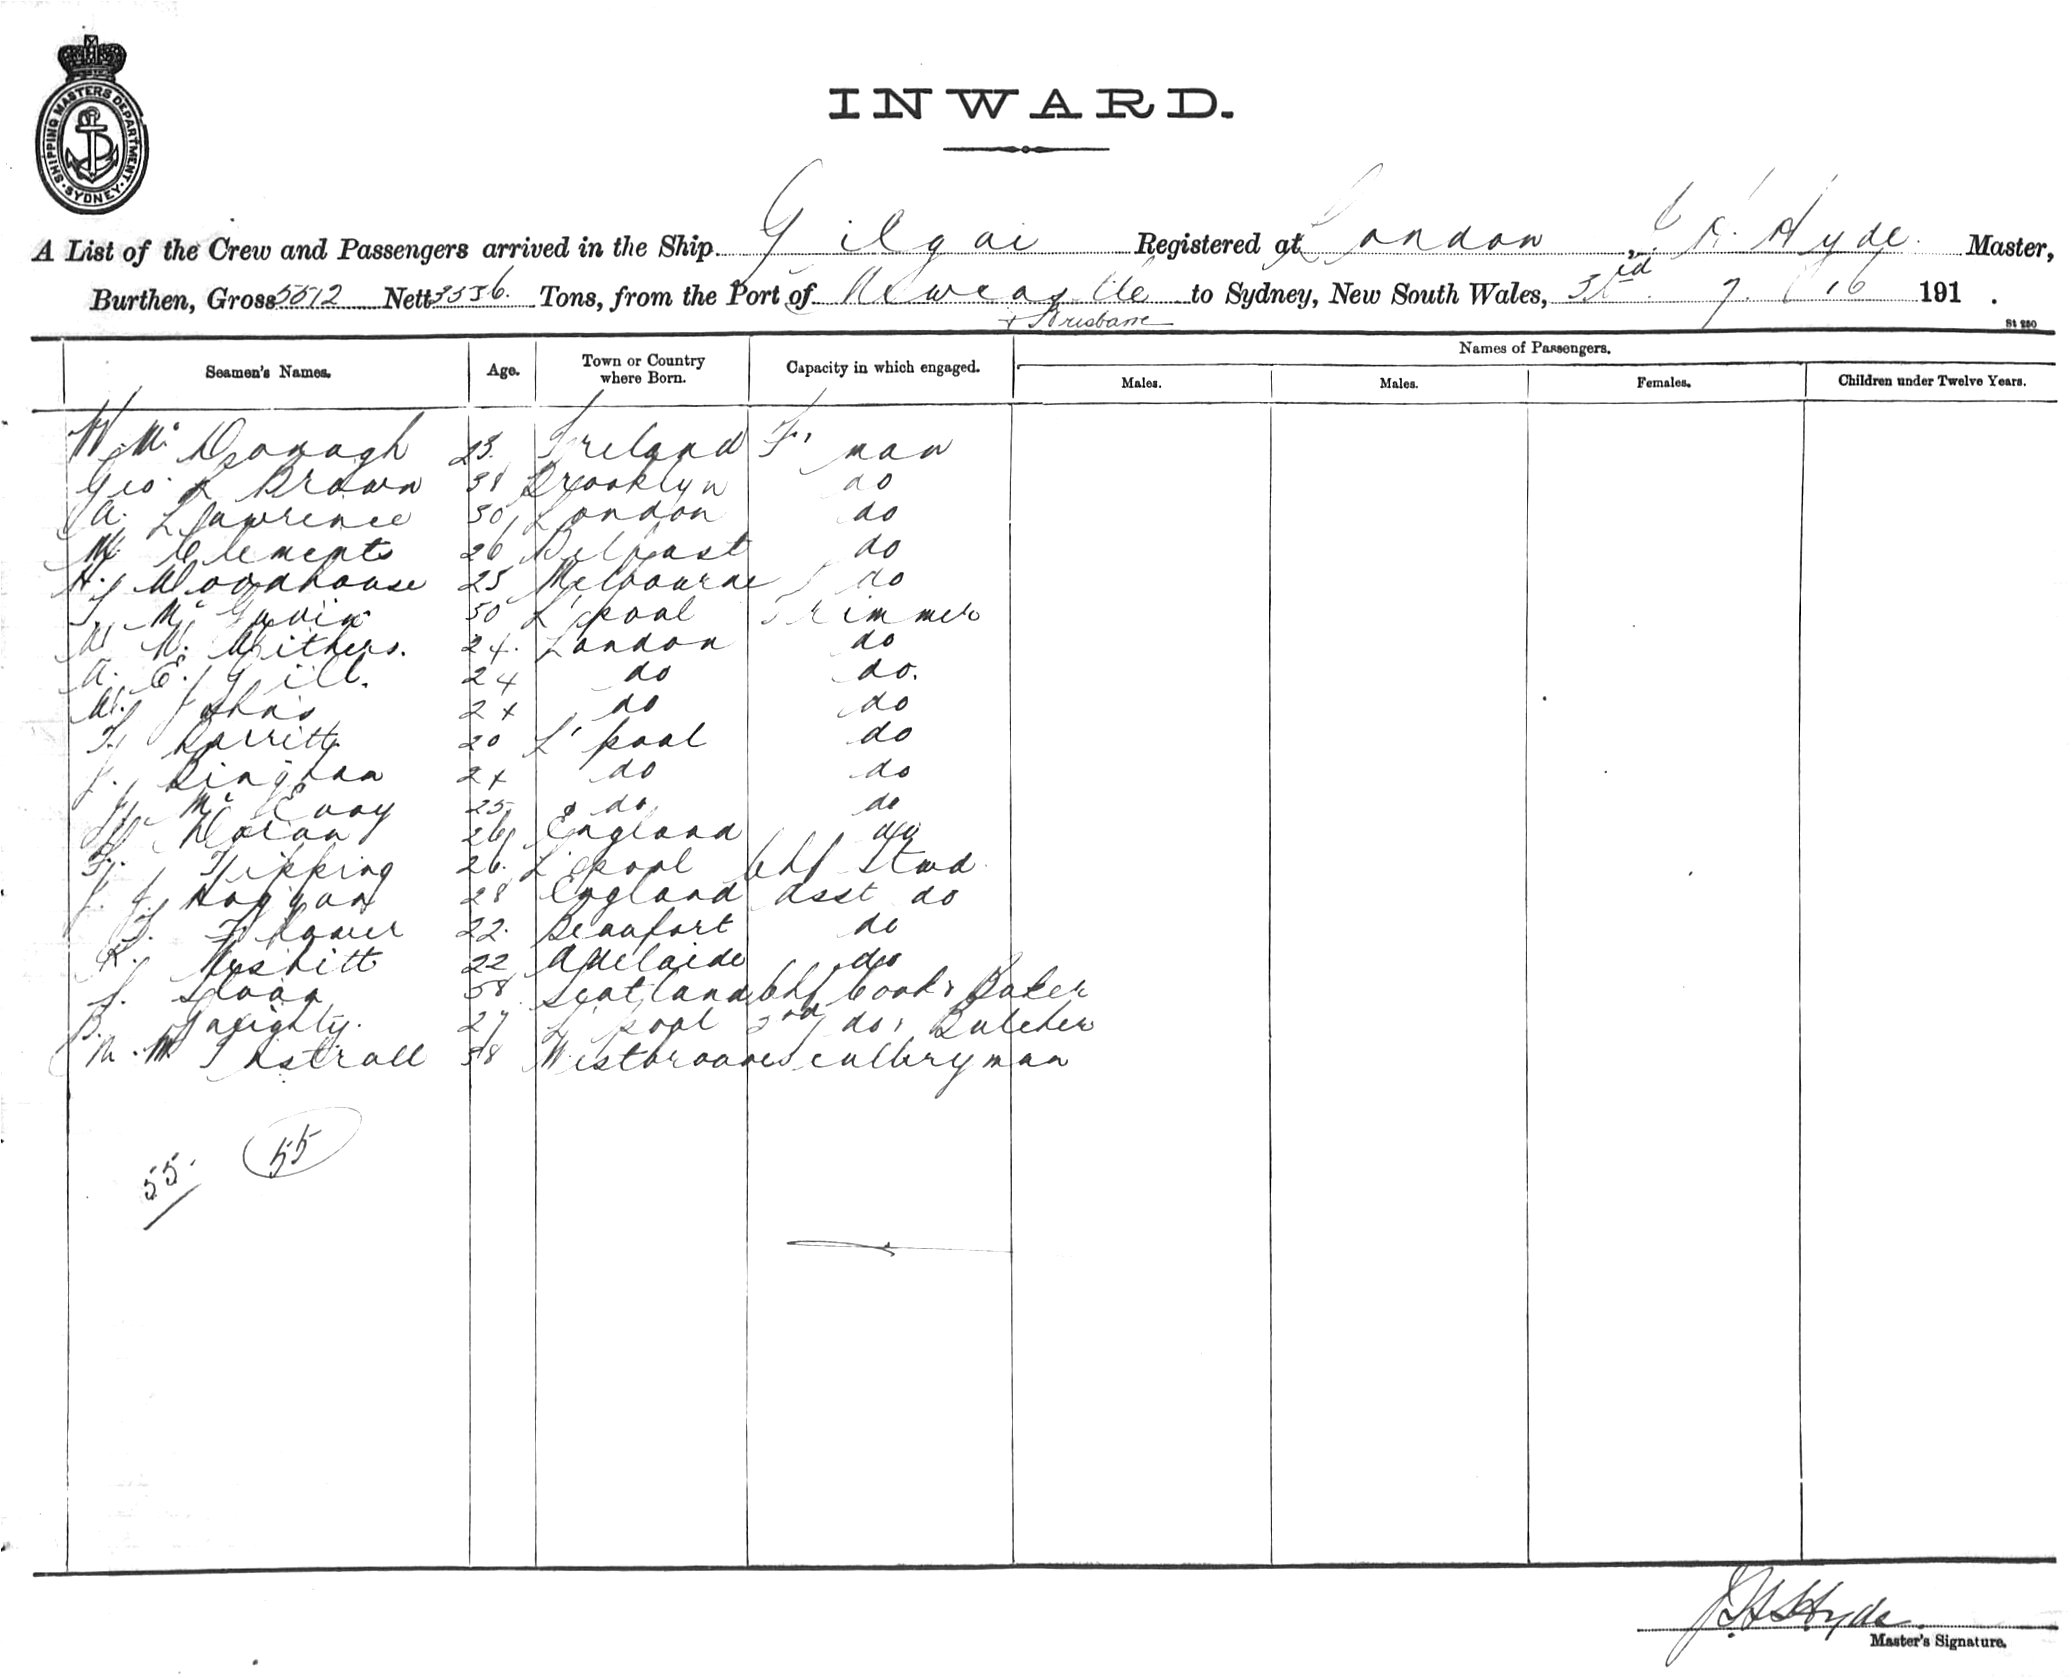 SHIPPING MASTERS DEPARTMENT. SYDNEY
INWARD.
A List of the Crew and Passengers arrived in the Ship Gilgai Registered at London, Hyde. Master,
Burthen, Gross 5512 Nett 3536. Tons, from the Port of Newcastle to Sydney, New South Wales, 3rd 7 16 191 .
+ Brisbane
St 250
Seamen's Names. Age. Town or Country where Born. Capacity in which engaged. Names of Passengers.
Males. Males. Females. Children under Twelve Years.
W. Mc Donagh 23. Ireland F' man
Geo. L Brown 38 Brooklyn do
A. Lawrence 30 London do
W. Clements 26 Belfast do
H. Woodhouse 25 Melbourne do
Mc Gavin 50 L'pool Trimmer
W. W. Withers. 24. London do
A. E. Gill. 24 do do.
W. Johns 24 do do
T. Barritt 20 L'pool do
J. Bingham 24 do do
Mc Evoy 25 do do
Doran 26 England do
Tipping 26. L'pool Chf Stwd.
J. J. 28 England Asst do
22. Beaufort do
R. Nesbitt 22 Adelaide do
58 Scotland Chf Cook & Baker
B. 27 L'pool 2nd do & Butcher
58 Scullery man
55. 55
Hyde
Master's Signature.